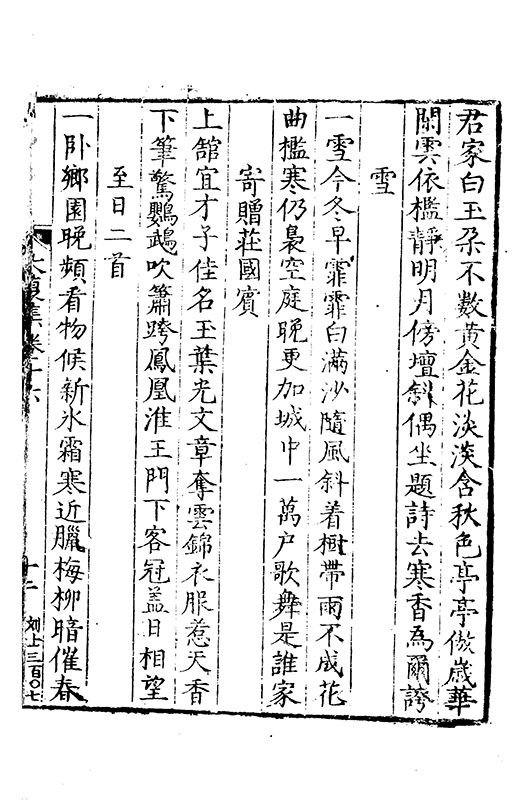 君家白玉朶不數黃金花淡淡含秋色亭亭傲歲華
闌雲依檻靜明月傍壇斜偶坐題詩去寒香爲爾誇
雪
一雪今冬早霏霏白滿沙隨風斜着樹帶雨不成花
曲檻寒仍裊空庭晚更加城中一萬户歌舞是誰家
寄贈莊國賓
上舘宜才子佳名玉葉光文章奪雲錦衣服惹天香
下筆驚鸚鵡吹簫跨鳳凰淮王門下客冠盖日相望
至日二首
一卧鄉園晚頻看物候新氷霜寒近臘梅柳暗催春
大復集卷十六
十二
刘士三百〇七